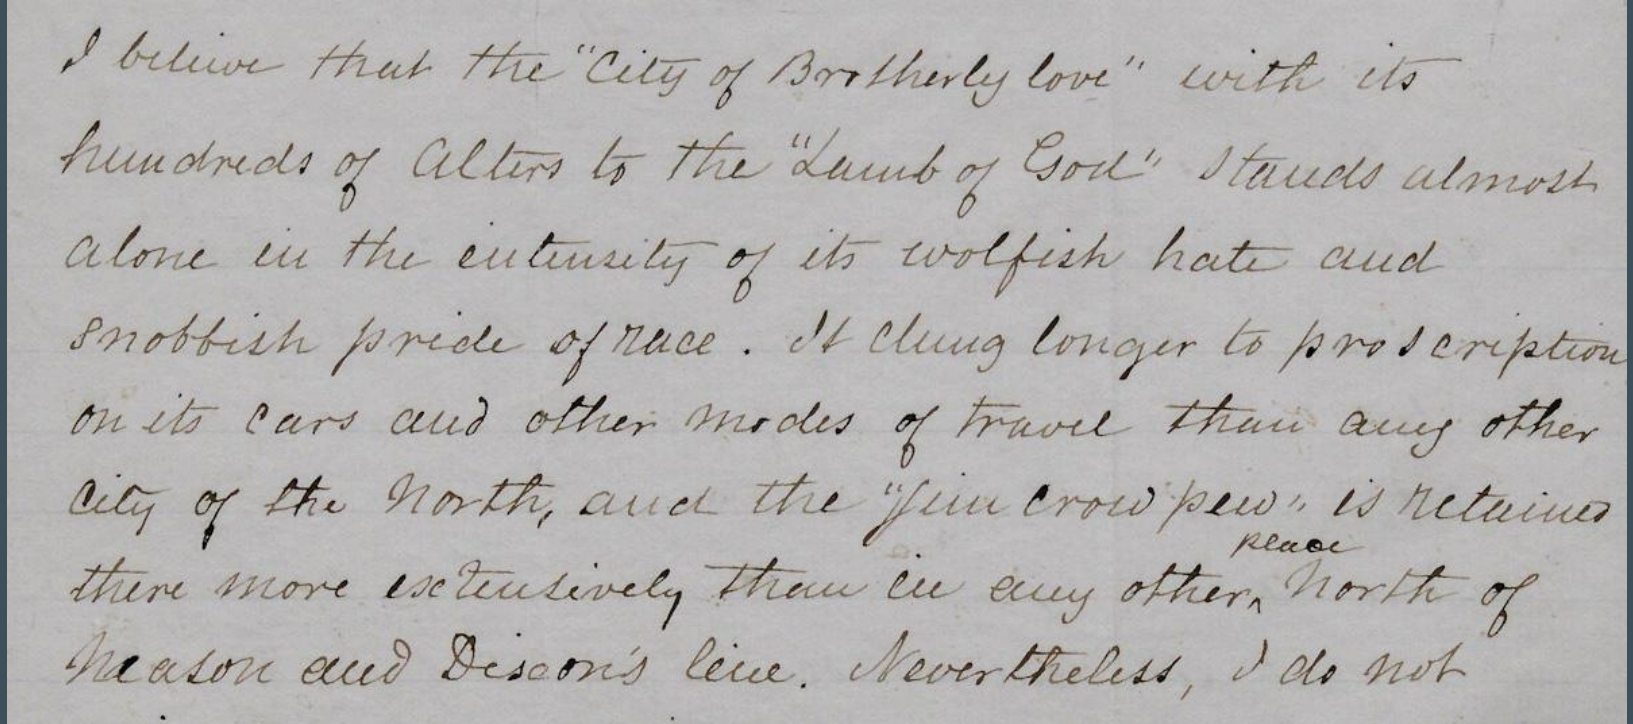 I believe that the "City of Brotherly love" with its
hundreds of Alters to the "Lamb of God" stands almost
alone in the intensity of its wolfish hate and
snobbish pride of race. It clung longer to proscription
on its cars and other modes of travel than any other
city of the North, and the "Jim crow pew" is retained
place
there more extensively than in any other ^ North of
Mason and Dixon's line. Nevertheless, I do not